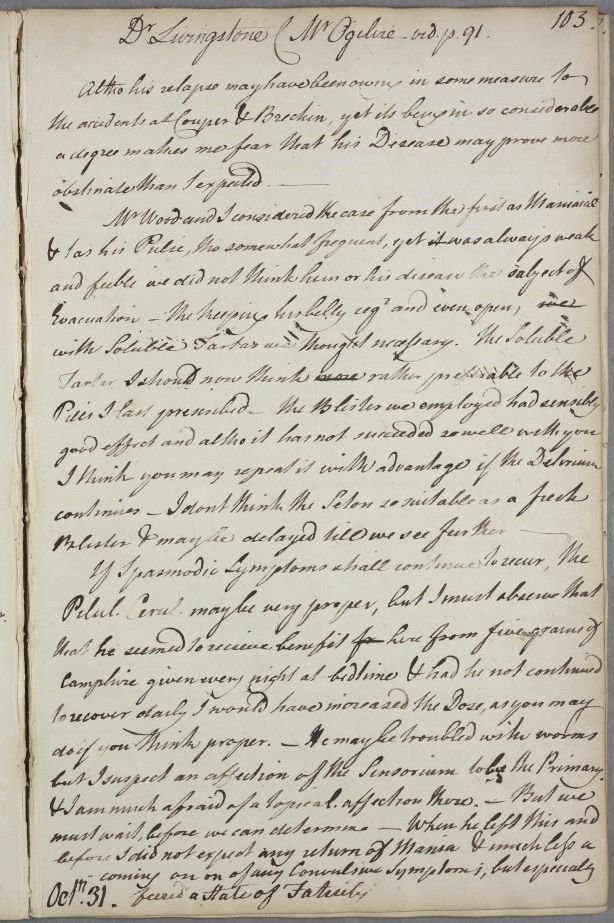 103.
Dr Livingstone ( Mr Ogilvie - vid. p. 91.
Altho his relapse may have been owing in some measure to
the accidents at Couper & Brechin, yet its being in so considerable
a degree makes me fear that his Disease may prove more
obstinate than I expected. —
Mr Wood and I considered the case from the first as Maniacal
& as his Pulse, tho somewhat frequent, yet it was always weak
and feeble we did not think him or his disease the subject of
Evacuation — The keeping his belly regr and even open, we
with Soluble Tartar we thought necessary. The Soluble
Tartar I should now think more rather preferable to the
Pills I last prescribed — The Blister we employed had sensibly
good effect and altho it has not succeeded so well with you
I think you may repeat it with advantage if the Delirium
continues — I dont think the Seton so suitable as a fresh
Blister & may be delayed till we see further —
If Spasmodic Symptoms shall continue to recur, the
Pilul. Cerul. may be very proper, but I must observe that
that he seemed to recieve benefit fr here from five grains of
Camphire given every night at bedtime & had he not continued
to recover daily I would have increased the Dose, as you may
do if you think proper. — He may be troubled with worms
but I suspect an affection of the Sensorium to be the Primary
& I am much afraid of a topical affection there. — But we
must wait before we can determine — When he left this and
before I did not expect any return of Mania & much less a
coming on on of any Convulsive Symptoms, but especially
Octr. 31. feared a State of Fatuity